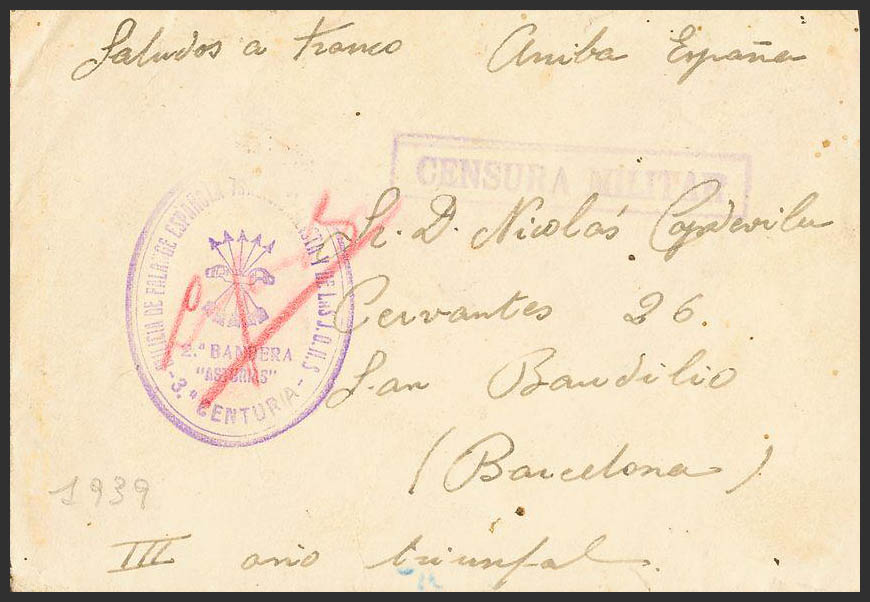 Saludos a Franco Arriba España
CENSURA MILITAR
MILICIA DE FALANGE ESPAÑOLA Y DE LAS J.O.N.S
2.ª BANDERA
"ASTURIAS"
- 3.ª CENTURIA -
Sr. D. Nicolás Capdevila
Cervantes 26.
San Baudilio
(Barcelona)
1939
III año triunfal.